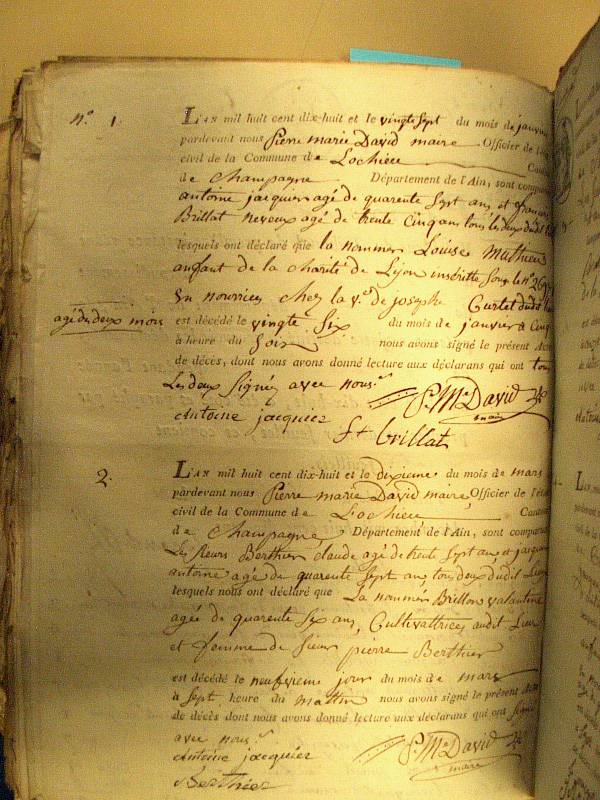 n.º 1.
L'AN mil huit cent dix-huit et le vingt sept du mois de janvier
pardevant nous Pierre marie David maire Officier de l'
civil de la Commune de Lochieu Cant
de Champagne Département de l'Ain, sont compar
antoine jacquier agé de quarente sept ans, et
Brillat neveux agé de trente cinq ans tous les deux dudit
lesquels ont déclaré que la nommée Louise Mathieu
anfant de la charité de Lyon inscritte sous le n.º
En nourrice, chez la v.e de joseph Curtet dudit
agé de deux mois
est décédé le vingte six du mois de janvier à cinq
à heure du Soir nous avons signé le présent Acte
de décès, dont nous avons donné lecture aux déclarans qui ont tous
Les deux Signés avec nous.
P. M.e David
maire
Antoine jacquier
ft brillat
2.
L'AN mil huit cent dix-huit et le dixieme du mois de mars
pardevant nous Pierre marie David maire Officier de l'éta
civil de la Commune de Lochieu Canton
de Champagne Département de l'Ain, sont comparu
Les sieurs Berthier claude agé de trente sept ans, et jacquier
antoine agé de quarente sept ans, tous deux dudit Lieu
lesquels nous ont déclaré que La nommée Brillon valantine
agée de quarente six ans, Cultivattrice, audit Lieu
et femme de sieur pierre Berthier
est décédé le neufvieme jour du mois de mars
à sept heure du mattin nous avons signé le présent Acte
de décès dont nous avons donné lecture aux déclarans qui ont signé
avec nous.
Antoine jacquier
P. M.e David
maire
Berthier